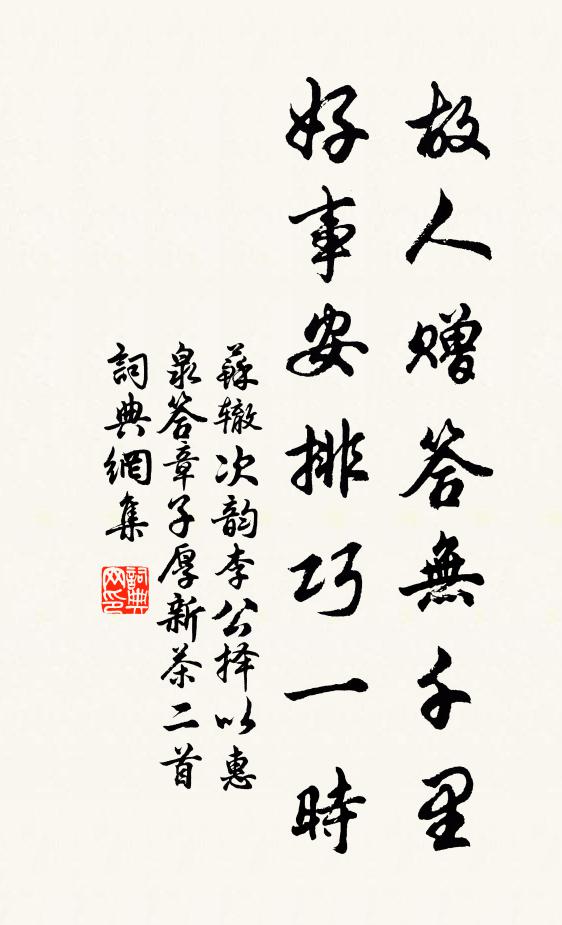 故人赠答無千里
好事安排巧一時
蘇辙次韵李公择以惠
泉答章子厚新茶二首
詞典網集
詞典網印